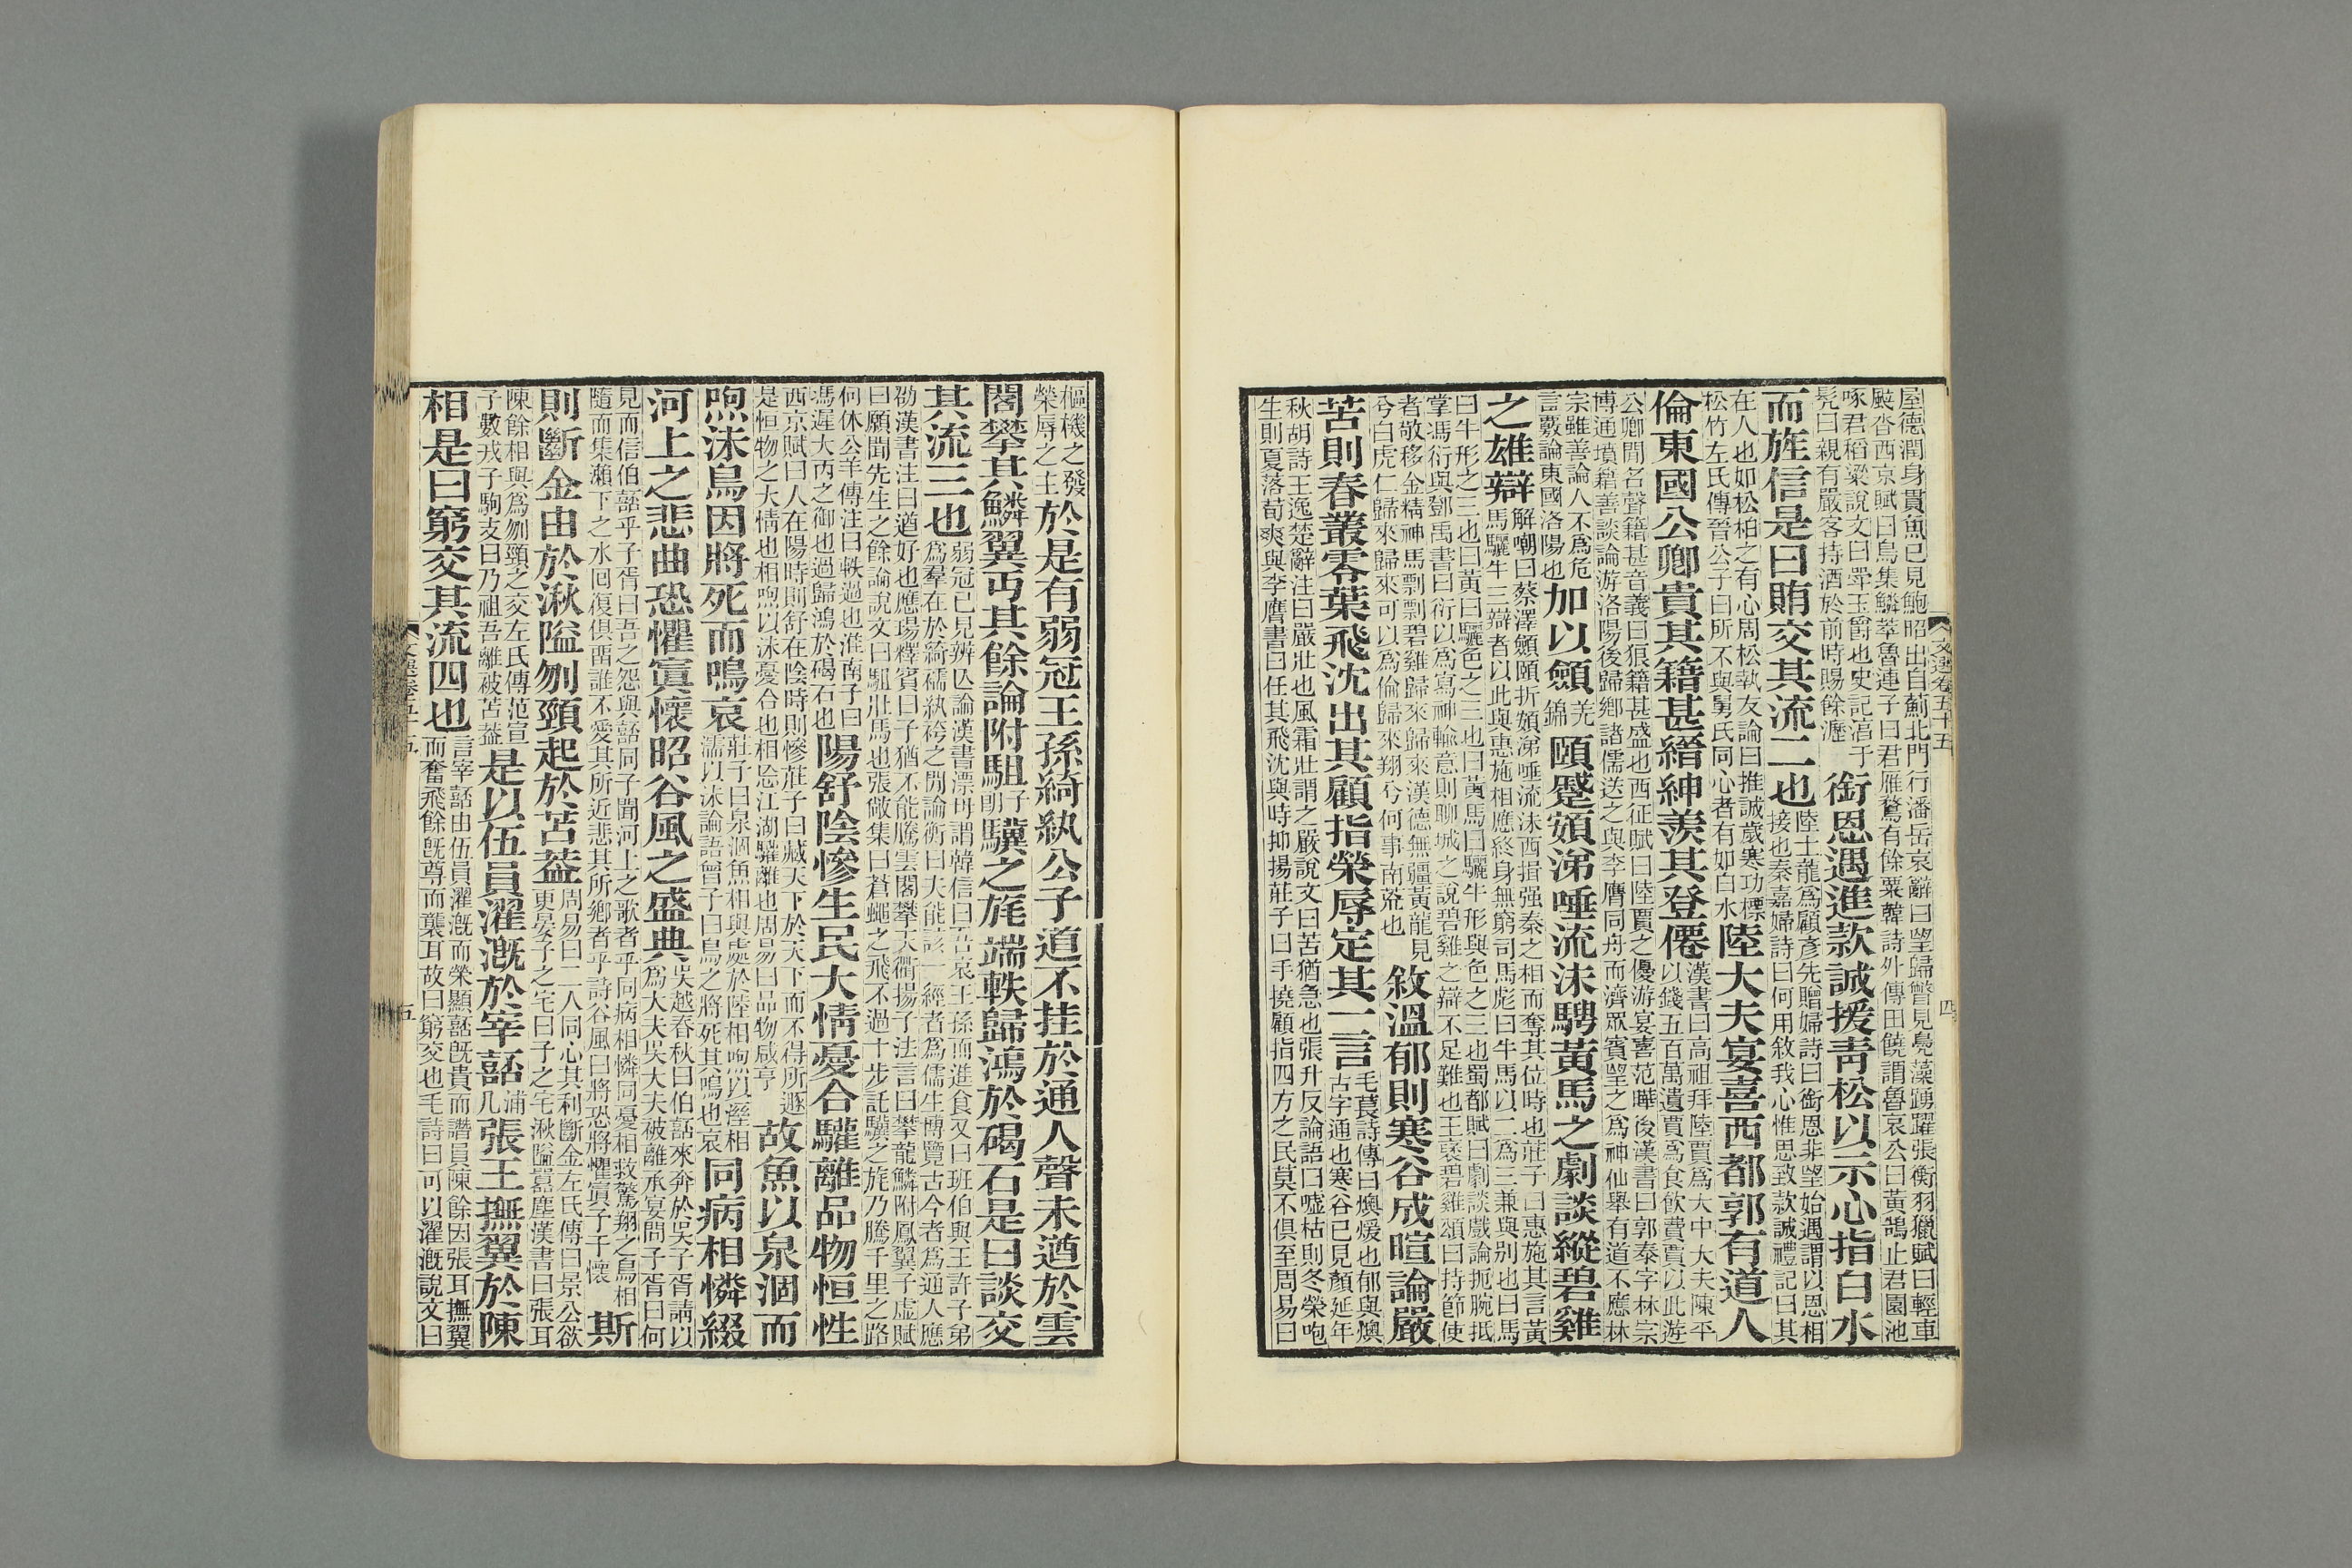 文選卷五十五
四
屋德潤身貫魚已見鮑昭出自薊北門行潘岳哀辭曰望歸瞥見鳧藻踴躍張衡羽獵賦曰輕車
颷沓西京賦曰鳥集鱗萃魯連子曰君雁鶩有餘粟韓詩外傳田饒謂魯哀公曰黃鵠止君園池
啄君稻粱說文曰斝玉爵也史記淳于髠曰親有嚴客持酒於前時賜餘瀝銜恩遇進款誠援青松以示心指白水
而旌信是曰賄交其流二也陸士龍爲顧彥先贈婦詩曰銜恩非望始遇謂以恩相接也秦嘉婦詩曰何用敘我心惟思致款誠禮記曰其
在人也如松柏之有心周松執友論曰推誠歲寒功標松竹左氏傳晉公子曰所不與舅氏同心者有如白水陸大夫宴喜西都郭有道人
倫東國公卿貴其籍甚縉紳羨其登僊漢書曰高祖拜陸賈爲大中大夫陳平以錢五百萬遺賈爲食飲費賈以此游
公卿間名聲籍甚音義曰狼籍甚盛也西征賦曰陸賈之優游宴喜范曄後漢書曰郭泰字林宗
博通墳籍善談論游洛陽後歸鄉諸儒送之與李膺同舟而濟眾賓望之爲神仙舉有道不應林
宗雖善論人不爲危言覈論東國洛陽也加以顩羌錦頤蹙頞涕唾流沫騁黃馬之劇談縱碧雞
之雄辯解嘲曰蔡澤顩頤折頞涕唾流沫西揖强秦之相而奪其位時也莊子曰惠施其言黃馬驪牛三辯者以此與惠施相應終身無窮司馬彪曰牛馬以二爲三兼與别也曰馬
曰牛形之三也曰黃曰驪色之三也曰黃馬曰驪牛形與色之三也蜀都賦曰劇談戲論扼腕抵
掌馮衍與鄧禹書曰衍以爲寫神輸意則聊城之說碧雞之辯不足難也王襃碧雞頌曰持節使
者敬移金精神馬剽剽碧雞歸來歸來漢德無疆黃龍見兮白虎仁歸來歸來可以爲倫歸來翔兮何事南荒也敘溫郁則寒谷成暄論嚴
苦則春叢零葉飛沈出其顧指榮辱定其一言毛萇詩傳曰燠煖也郁與燠古字通也寒谷已見顏延年
秋胡詩王逸楚辭注曰嚴壯也風霜壯謂之嚴說文曰苦猶急也張升反論語曰噓枯則冬榮吹
生則夏落荀爽與李膺書曰任其飛沈與時抑揚莊子曰手撓顧指四方之民莫不俱至周易曰
樞機之發榮辱之主於是有弱冠王孫綺紈公子道不挂於通人聲未遒於雲
閣攀其鱗翼丐其餘論附駔子朗驥之旄端軼歸鴻於碣石是曰談交
其流三也弱冠已見辨亾論漢書漂母謂韓信曰吾哀王孫而進食又曰班伯與王許子弟爲羣在於綺襦紈袴之閒論衡曰夫能該一經者爲儒生博覽古今者爲通人應
劭漢書注曰遒好也應瑒釋賓曰子猶不能騰雲閣攀天衢揚子法言曰攀龍鱗附鳳翼子虛賦
曰願聞先生之餘論說文曰駔壯馬也張敞集曰蒼蠅之飛不過十步託驥之旄乃騰千里之路
何休公羊傳注曰軼過也淮南子曰馮遲大丙之御也過歸鴻於碣石也陽舒陰慘生民大情憂合驩離品物恒性
西京賦曰人在陽時則舒在陰時則慘莊子曰藏天下於天下而不得所遯是恒物之大情也相呴以沫憂合也相忘江湖驩離也周易曰品物咸亨故魚以泉涸而
呴沫鳥因將死而鳴哀莊子曰泉涸魚相與處於陸相呴以溼相濡以沫論語曾子曰鳥之將死其鳴也哀同病相憐綴
河上之悲曲恐懼寘懷昭谷風之盛典吳越春秋曰伯嚭來奔於吳子胥請以爲大夫吳大夫被離承宴問子胥曰何
見而信伯嚭乎子胥曰吾之怨與嚭同子聞河上之歌者乎同病相憐同憂相救驚翔之鳥相隨而集瀨下之水回復俱畱誰不愛其所近悲其所鄉者乎詩谷風曰將恐將懼寘予于懷斯
則斷金由於湫隘刎頸起於苫葢周易曰二人同心其利斷金左氏傳曰景公欲更晏子之宅曰子之宅湫隘囂塵漢書曰張耳
陳餘相與爲刎頸之交左氏傳范宣子數戎子駒支曰乃祖吾離被苫葢是以伍員濯溉於宰嚭浦几張王撫翼於陳
相是曰窮交其流四也言宰嚭由伍員濯溉而榮顯嚭旣貴而譖員陳餘因張耳撫翼而奮飛餘旣尊而襲耳故曰窮交也毛詩曰可以濯溉說文曰
文選卷五十五
五